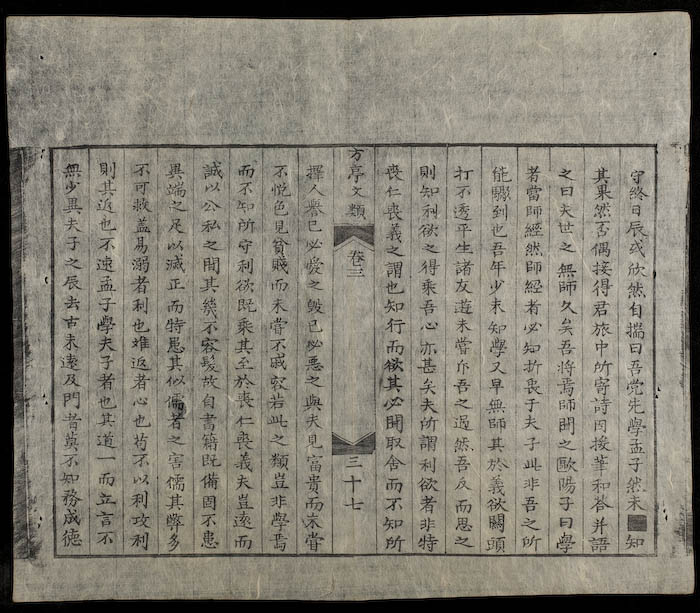 守終日辰或欣然自揣曰吾党先學孟子然未知
其果然否偶接得君旅中所寄詩因援筆和答并語
之曰夫世之無師久矣吾將焉師聞之歐陽子曰學
者當師經然師經者必知折衷于夫子此非吾之所
能驟到也吾年少未知學又早無師其於義欲關頭
打不透平生諸友遊未嘗斥吾之過然吾反而思之
則知利欲之得乘吾心亦甚矣夫所謂利欲者非特
喪仁喪義之謂也知行而欲其必聞取舍而不知所
方亭文類 卷三 三十七
擇人譽已必愛之毀已必惡之與夫見富貴而未嘗
不悅色見貧賤而未嘗不戚容若此之類豈非學焉
而不知所守利欲既乘其至於喪仁喪義夫豈遠而
誠以公私之間其幾不容髮故自書籍既備固不患
異端之足以滅正而特患其似儒者之害儒其弊多
不可救盖易溺者利也难返者心也苟不以利攻利
則其返也不速孟子學夫子者也其道一而立言不
無少異夫子之辰去古未遠及門者莫不知務成德